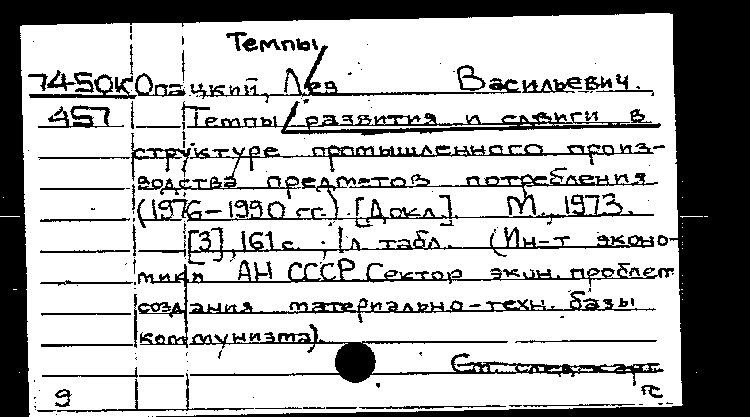 Темпы/
74-50К Опацкий, Лев Васильевич.
457 Темпы/развития и сдвиги в
структуре промышленного произ-
водства предметов потребления
(1976-1990 гг.) [Докл.]. М., 1973.
[3], 161 с.; 1 л. табл. (Ин-т эконо-
мики АН СССР. Сектор экон. проблем
создания материально-техн. базы
коммунизма).
См. след. карт.
9 пс